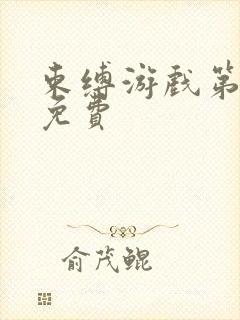 束缚游戏第
免费
俞茂鲲